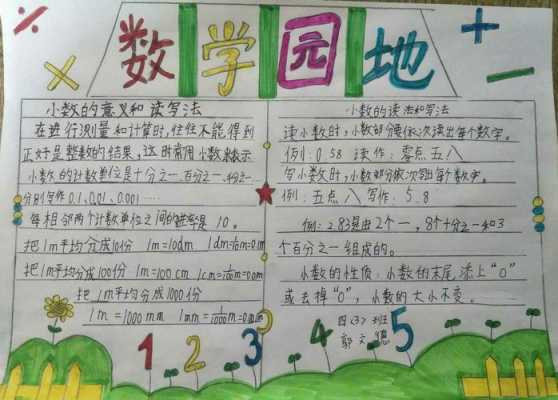 数学园地
小数的意义和读写法
在进行测量和计算时,往往不能得到
正好是整数的结果,这时常用小数来表示
小数的计数单位是十分之一、百分之一、千分之一……
分别写作0.1、0.01、0.001……
每相邻两个计数单位之间的进率是10。
把1m平均分成10份 1m=10dm 1dm=1/10m=0.1m
把1m平均分成100份 1m=100cm 1cm=1/100m=0.01m
把1m平均分成1000份
1m=1000mm 1mm=1/1000m=0.001m
小数的读法和写法
读小数时,小数部分要依次读出每个数字。
例:0.58 读作:零点五八
写小数时,小数部分依次写出每个数字。
例:五点八 写作:5.8
例:2.83是由2个一,8个十分之一和3
个百分之一组成的。
小数的性质:小数的末尾添上“0”
或去掉“0”,小数的大小不变。
四(3)班
郭文
1 2 3 4 5